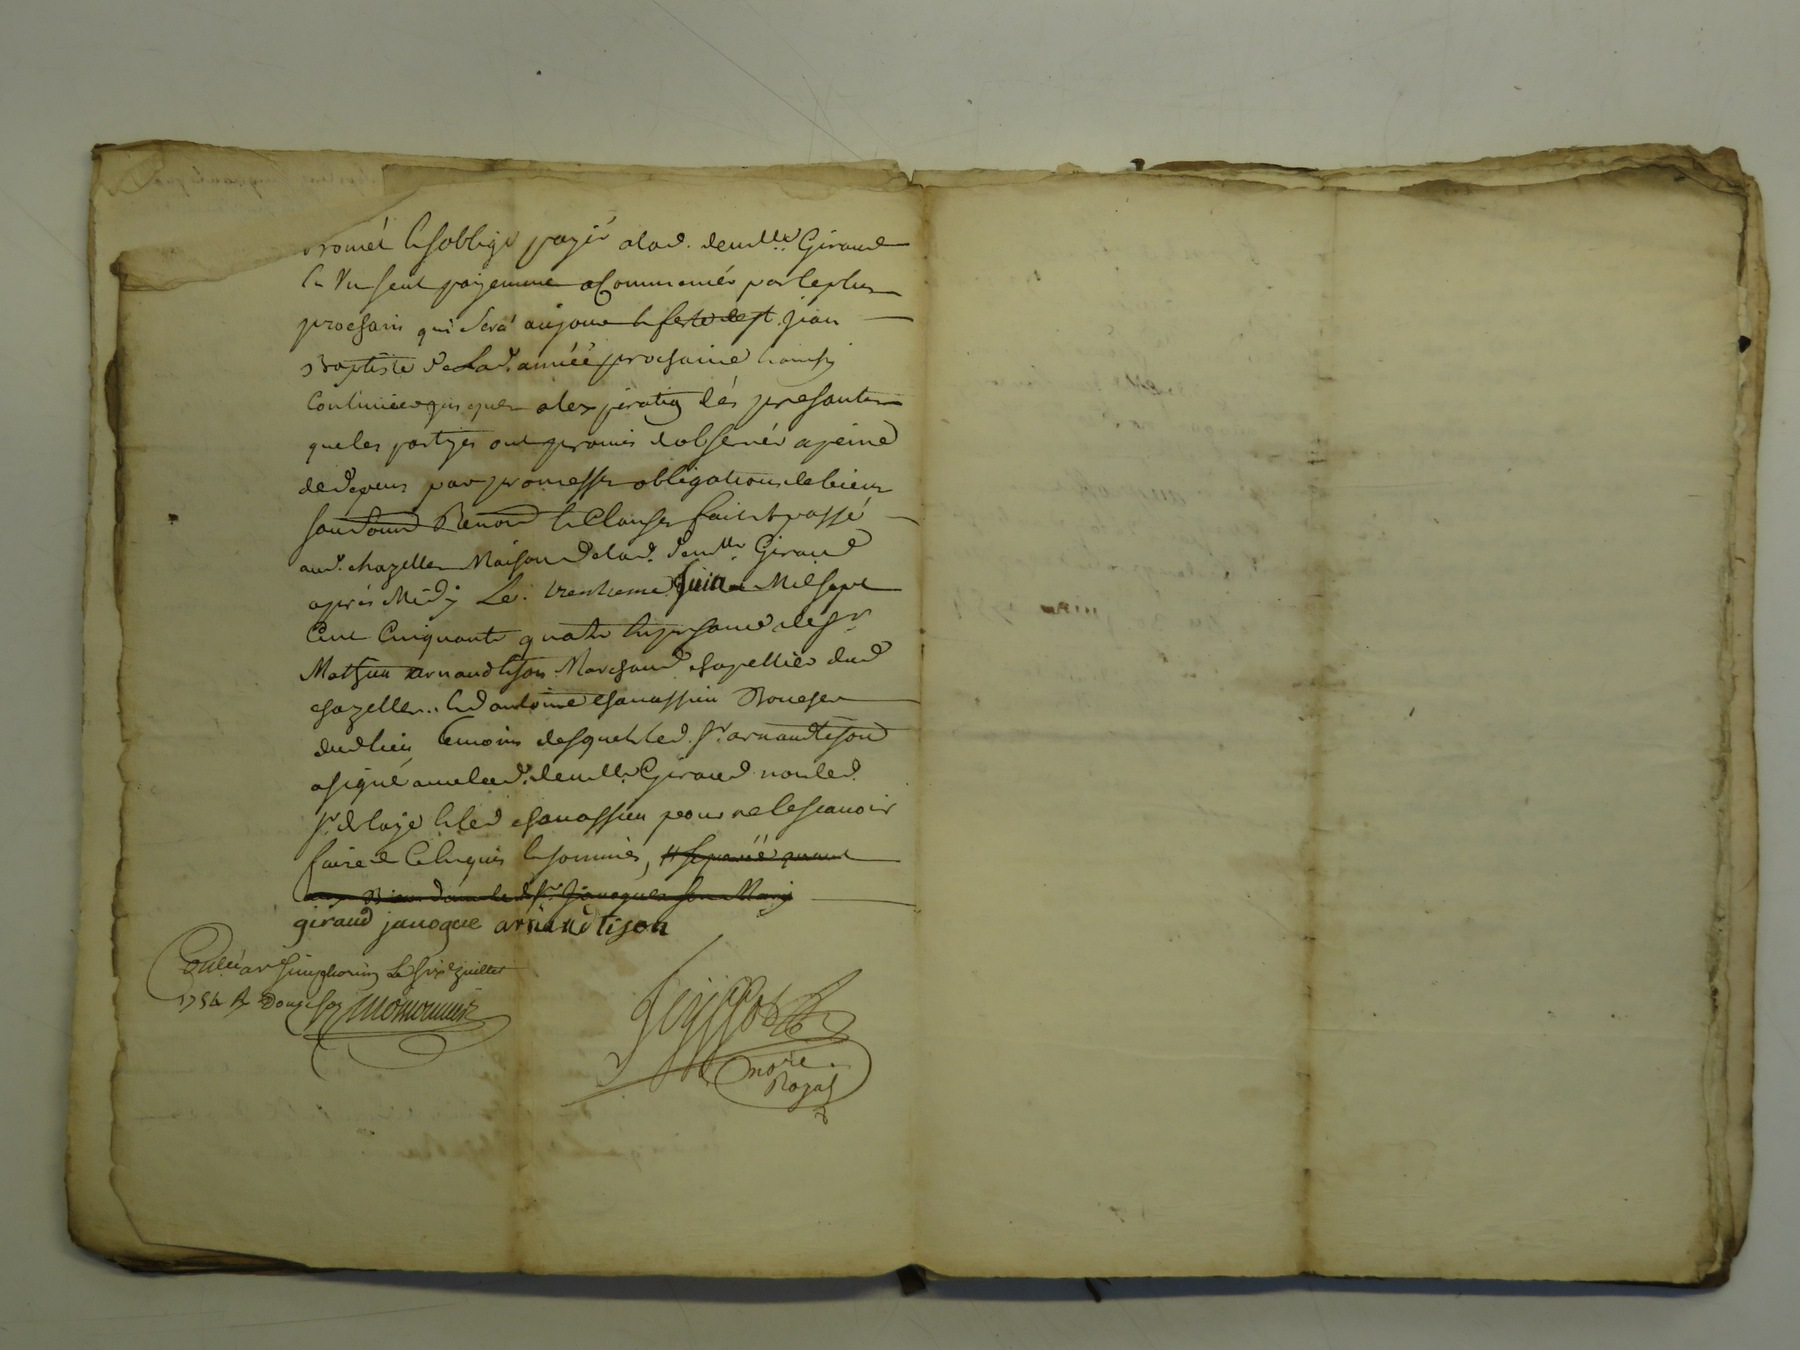 promet & soblige payér alad. demlle. Giraud
En Un seul payement aCommencér par le plus
prochain qui Sera aujour & feste de st. jean
Baptiste de Lad. année prochaine & ainsy
Continuér jusques alexpiration dés presantes
que les partyes ont promis dobservér apeine
de depens par promesses obligations de biens
soub.ons Renon.ons & Clauses fait & passé
aud. chazelles Maison de lad. demlle. Giraud
aprés Midy Le. trentieme Juin Mil sept
Cent Cinquante quatre En presance de sr.
Mathieu arnaudtison Marchand chapellier dud.
chazelles. & d'antoine chanassieu Boucher
dud lieu temoins desquels led. sr. arnaudtison
asigné avec lad. demlle. Giraud non led.
sr. delaye & led chanassieu pour ne le scavoir
faire de Ce Enquis & sommés,
giraud janogue arnaudtison
Conllé a st Simphorien Le six juillet
1754 R Douze sols
nore.
Royal